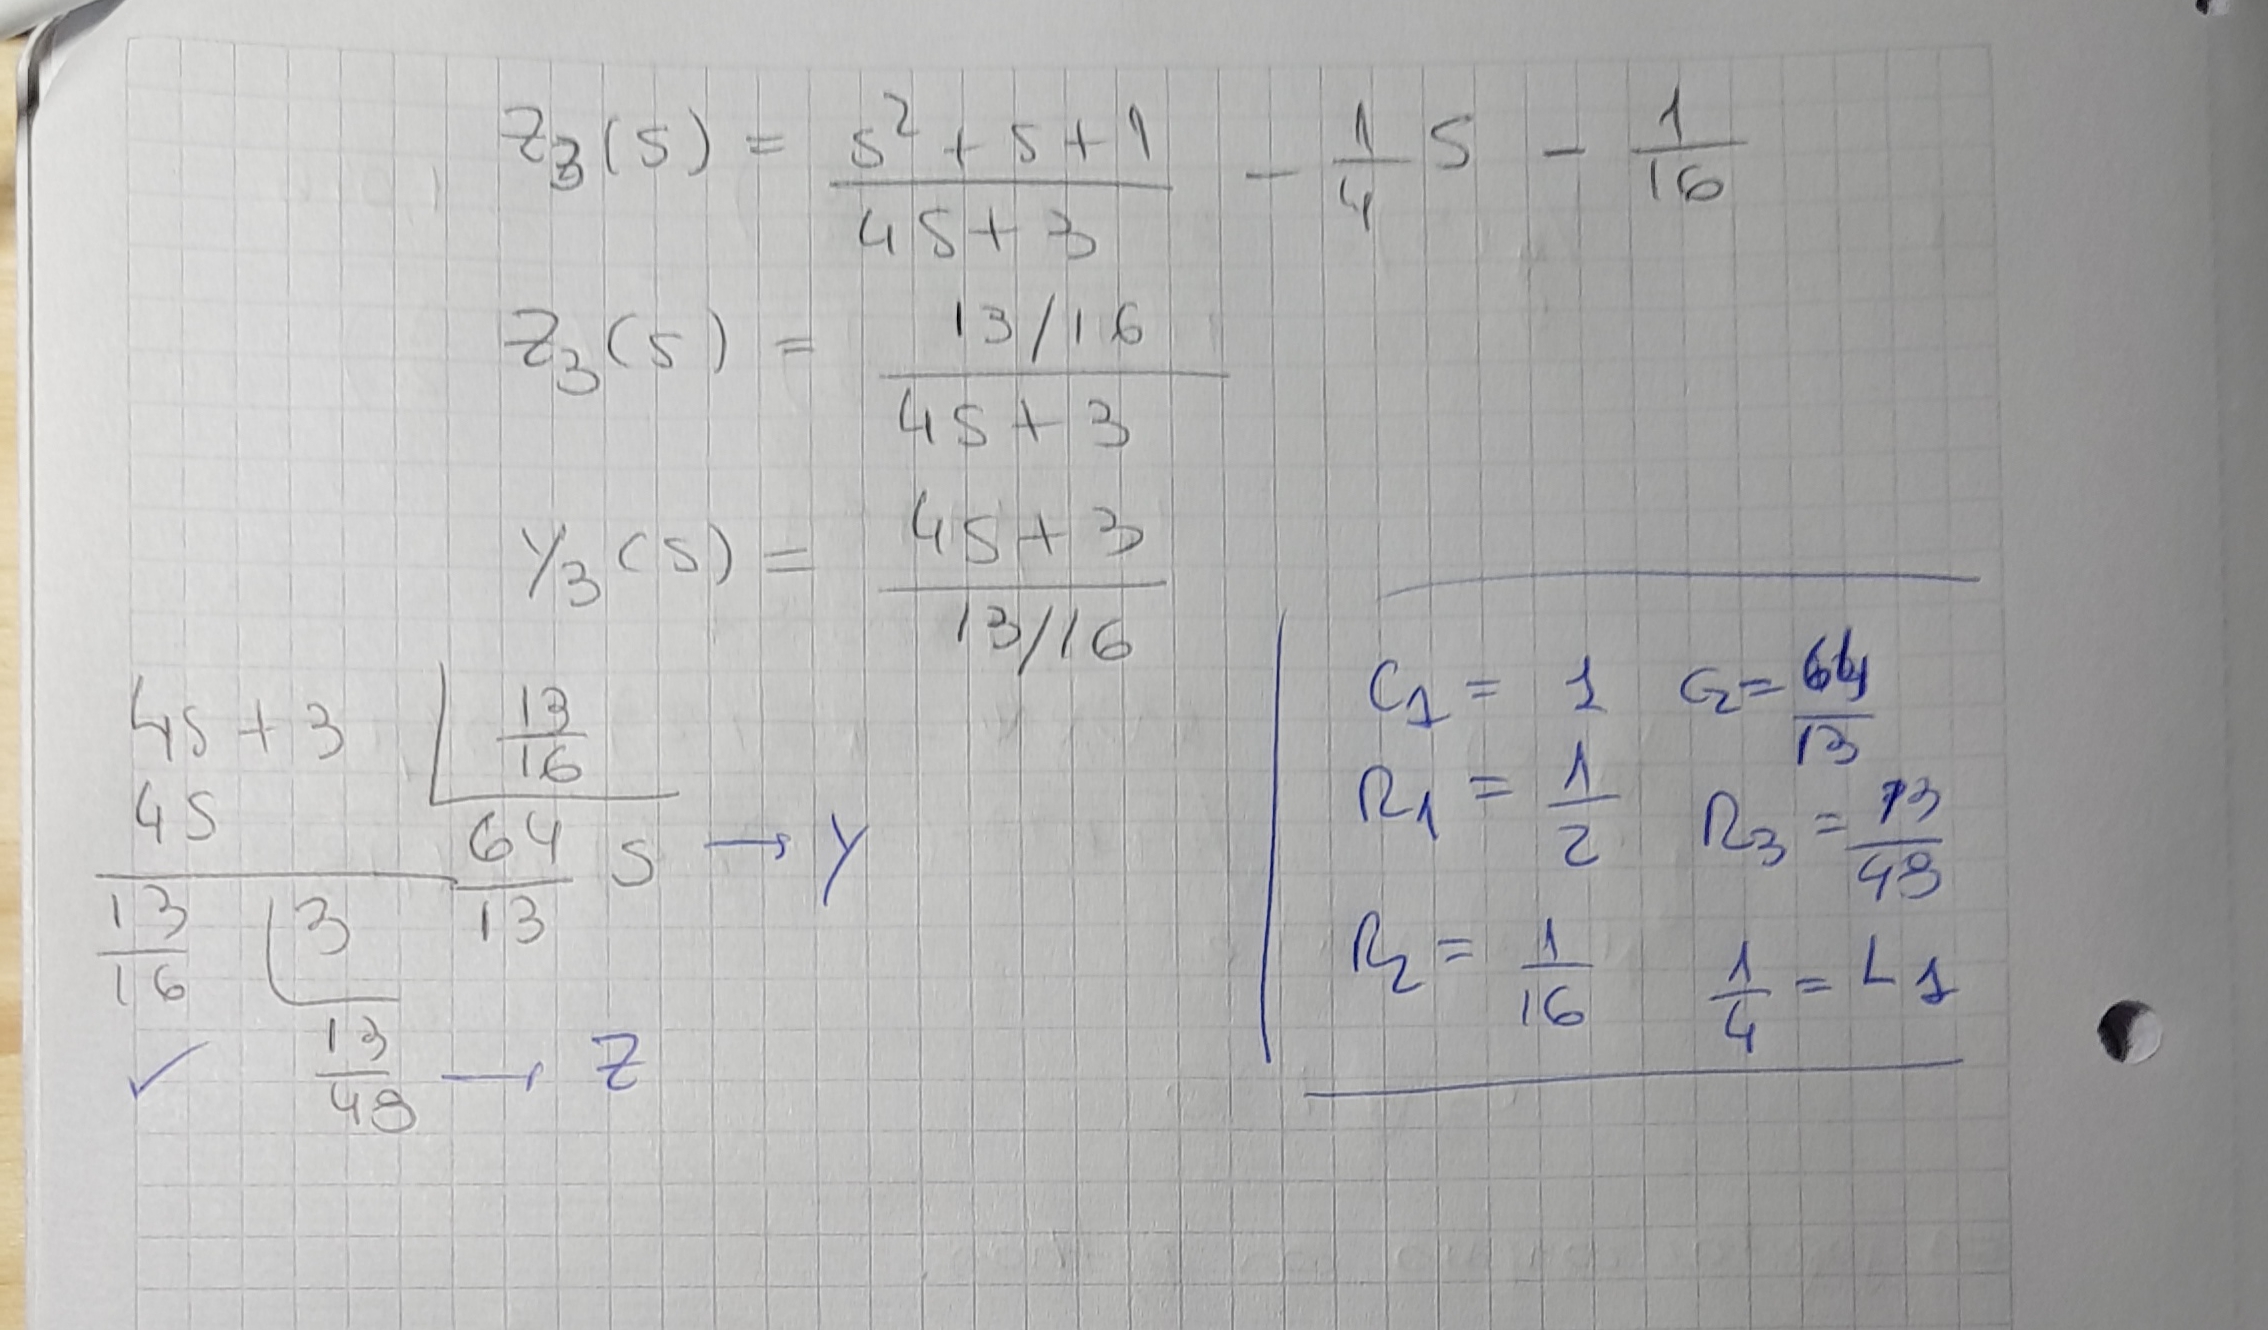 Z₃(s) = (s² + s + 1)/(4s + 3) − 1/4 s − 1/16
Z₃(s) = (13/16)/(4s + 3)
Y₃(s) = (4s + 3)/(13/16)
4s + 3 | 13/16
4s
64/13 s → Y
13/16 | 3
✓ 13/48 → Z
C₁ = 1 C₂ = 64/13
R₁ = 1/2 R₃ = 13/48
R₂ = 1/16 1/4 = L₁